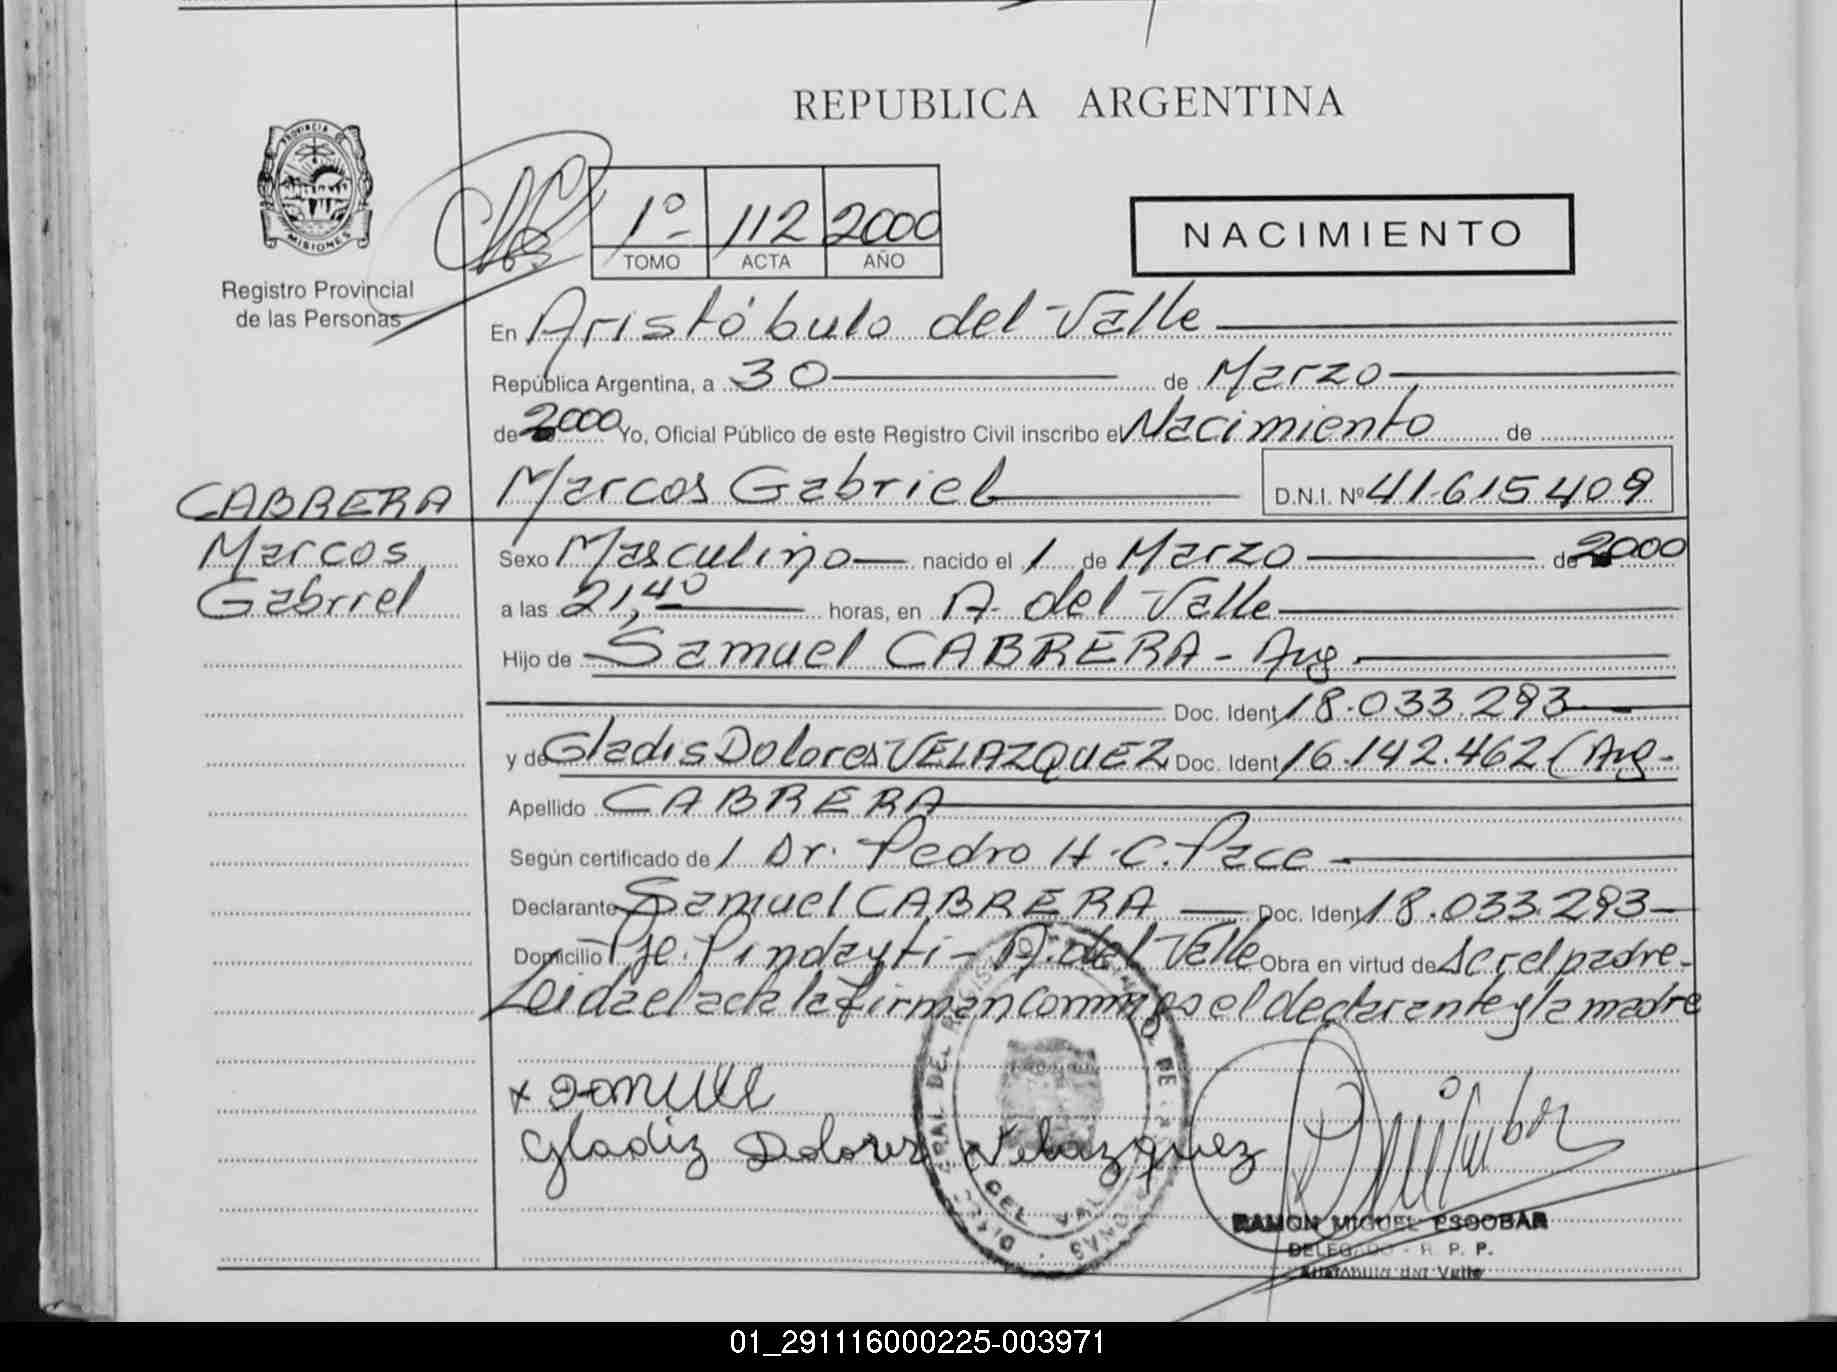 REPUBLICA ARGENTINA
PROVINCIA DE
MISIONES
Registro Provincial
de las Personas
1º- 112 2000
TOMO ACTA AÑO
NACIMIENTO
En Aristóbulo del Valle
República Argentina, a 30 de Marzo
de 2000 Yo, Oficial Público de este Registro Civil inscribo el Nacimiento de
CABRERA Marcos Gabriel D.N.I. Nº 41.615.409
Marcos Sexo Masculino nacido el 1 de Marzo de 2000
Gabriel a las 21,40 horas, en A. del Valle
Hijo de Samuel CABRERA - Arg
Doc. Ident 18.033.293
y de Gladis Dolores VELAZQUEZ Doc. Ident 16.142.462 (Arg-
Apellido CABRERA
Según certificado de 1 Dr. Pedro H.C. Pace
Declarante Samuel CABRERA Doc. Ident 18.033.293
Domicilio Pje. Pindayti - A. del Valle Obra en virtud de Ser el padre-
Leida el acta la firman conmigo el declarante y la madre
x
Gladiz Dolores Velazquez
RAMON MIGUEL ESCOBAR
DELEGADO - R. P. P.
Aristobulo del Valle
01_291116000225-003971